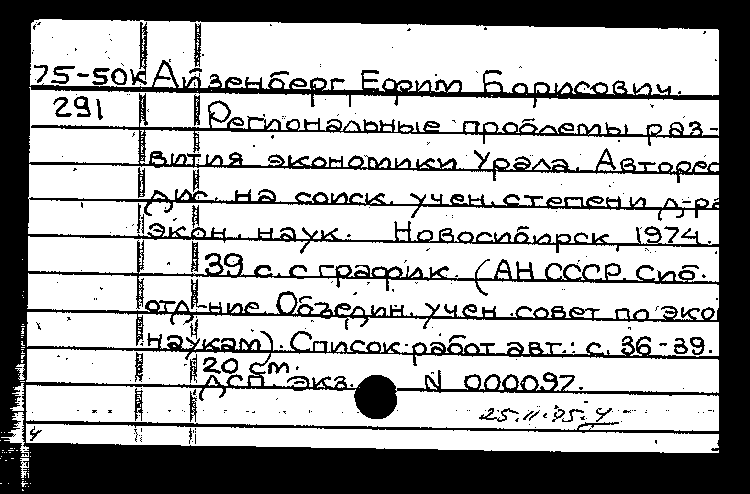 75-50к Айзенберг, Ефим Борисович.
291 Региональные проблемы раз-
вития экономики Урала. Авторес
дис. на соиск. учен. степени д-ра
экон. наук. Новосибирск, 1974.
39 с. с график. (АН СССР. Сиб.
отд-ние. Объедин. учен. совет по эко
наукам). Список работ авт.: с. 36-39.
20 см.
ДСП. экз. N 000097.
4